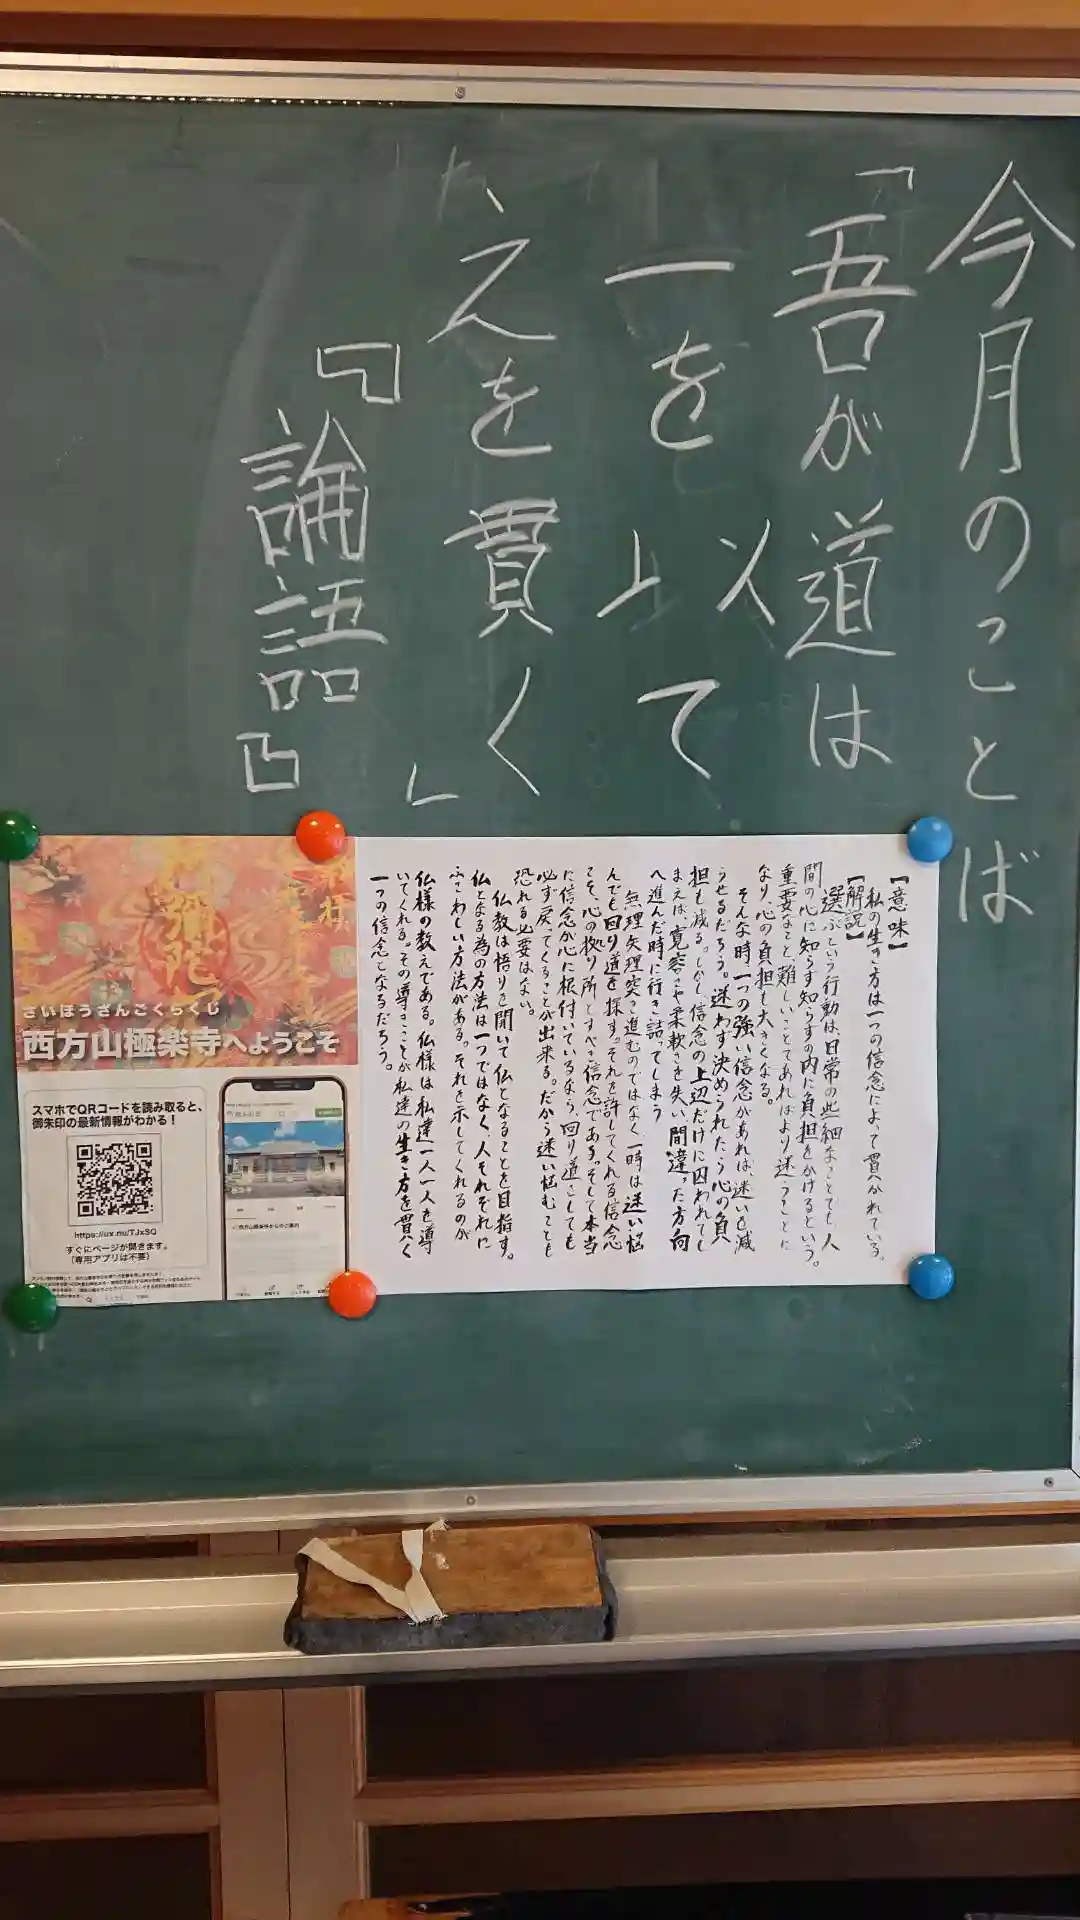 今月のことば
「吾が道は
一を以て
之を貫く」
『論語』
【意味】
私の生き方は一つの信念によって貫かれている。
【解説】
選ぶという行動は、日常の些細なことでも、人
間の心に知らず知らずの内に負担をかけるという。
重要なこと、難しいことであればより迷うことに
なり、心の負担も大きくなる。
そんな時、一つの強い信念があれば、迷いも減
うせるだろう。迷わず決められたら心の負
担も減る。しかし信念の上辺だけに囚われてし
まえば、寛容さや柔軟さを失い、間違った方向
へ進んだ時に行き詰ってしまう
無理矢理突き進むのではなく、一時は迷い悩
んでも回り道を探す。それを許してくれる信念
こそ、心の拠り所とすべき信念である。そして本当
に信念が心に根付いているなら、回り道をしても
必ず戻ってくることが出来る。だから迷い悩むことも
恐れる必要はない。
仏教は悟りを開いて仏となることを目指す。
仏となる為の方法は一つではなく、人それぞれに
ふさわしい方法がある。それを示してくれるのが
仏様の教えである。仏様は私達一人一人を導
いてくれる。その導きこそが私達の生き方を貫く
一つの信念となるだろう。
さいほうざんごくらくじ
西方山極楽寺へようこそ
スマホでQRコードを読み取ると、
御朱印の最新情報がわかる！
https://ux.nu/TJxSQ
すぐにページが開きます。
（専用アプリは不要）